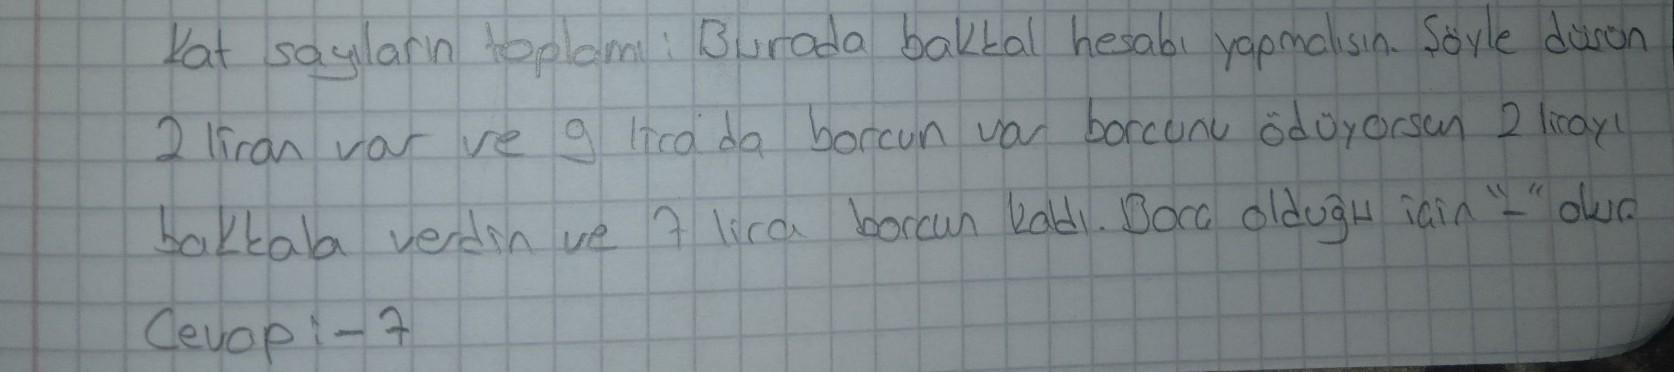 Kat sayıların toplamı: Burada bakkal hesabı yapmalısın. Şöyle düşün
2 liran var ve 9 lira da borcun var borcunu ödüyorsun 2 lirayı
bakkala verdin ve 7 lira borcun kaldı. Borç olduğu için "-" olur
Cevap: -7